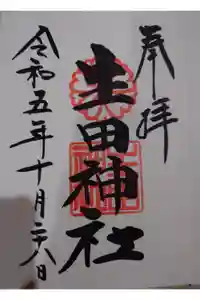 奉拝
生田神社
令和五年十月二十八日